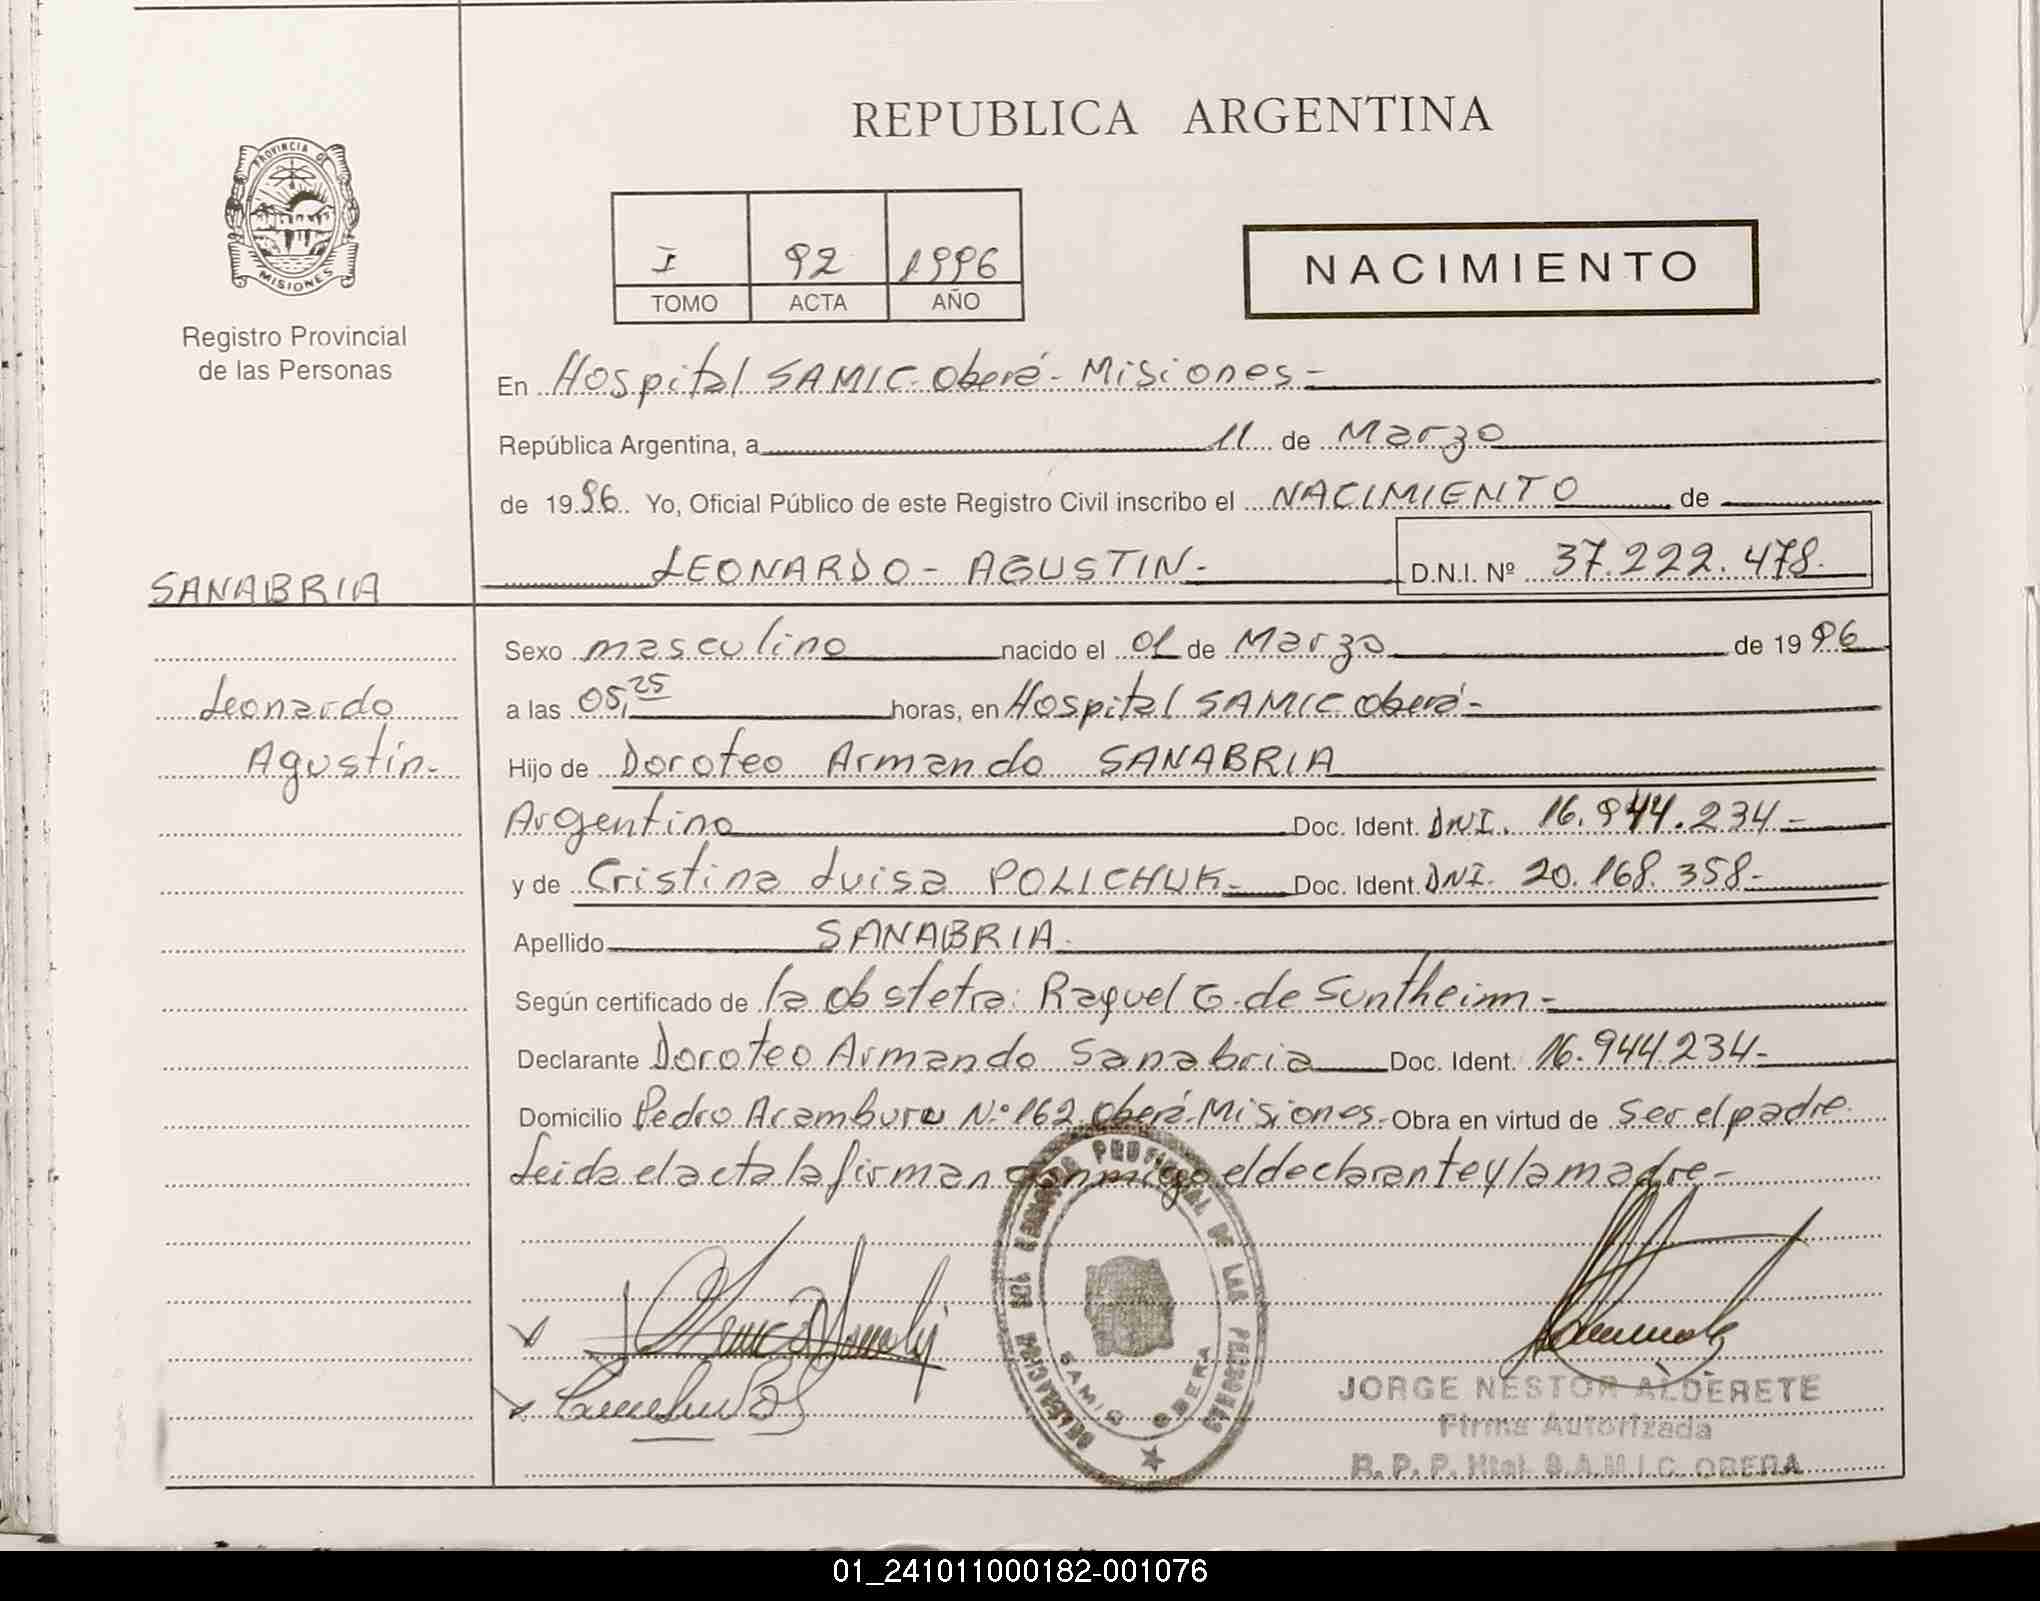 REPUBLICA ARGENTINA
PROVINCIA DE
MISIONES
Registro Provincial
de las Personas
I 92 1996
TOMO ACTA AÑO
NACIMIENTO
En Hospital SAMIC. Oberá - Misiones -
República Argentina, a 11 de Marzo
de 1996. Yo, Oficial Público de este Registro Civil inscribo el NACIMIENTO de
LEONARDO - AGUSTIN - D.N.I. Nº 37.222.478.
SANABRIA
Leonardo
Agustín-
Sexo masculino nacido el 01 de Marzo de 1996
a las 05,25 horas, en Hospital SAMIC Oberá -
Hijo de Doroteo Armando SANABRIA
Argentino Doc. Ident. DNI. 16.944.234 -
y de Cristina Luisa POLICHUK - Doc. Ident. DNI. 20.168.358 -
Apellido SANABRIA.
Según certificado de la obstetra: Raquel G. de Suntheim -
Declarante Doroteo Armando Sanabria Doc. Ident. 16.944.234 -
Domicilio Pedro Aramburu Nº 162 Oberá - Misiones - Obra en virtud de ser el padre.
Leida el acta la firman conmigo el declarante y la madre -
DELEGACION DEL REGISTRO PROVINCIAL DE LAS PERSONAS
SAMIC OBERA
JORGE NESTOR ALDERETE
Firma Autorizada
R. P. P. Htal. S.A.M.I.C. OBERA
01_241011000182-001076